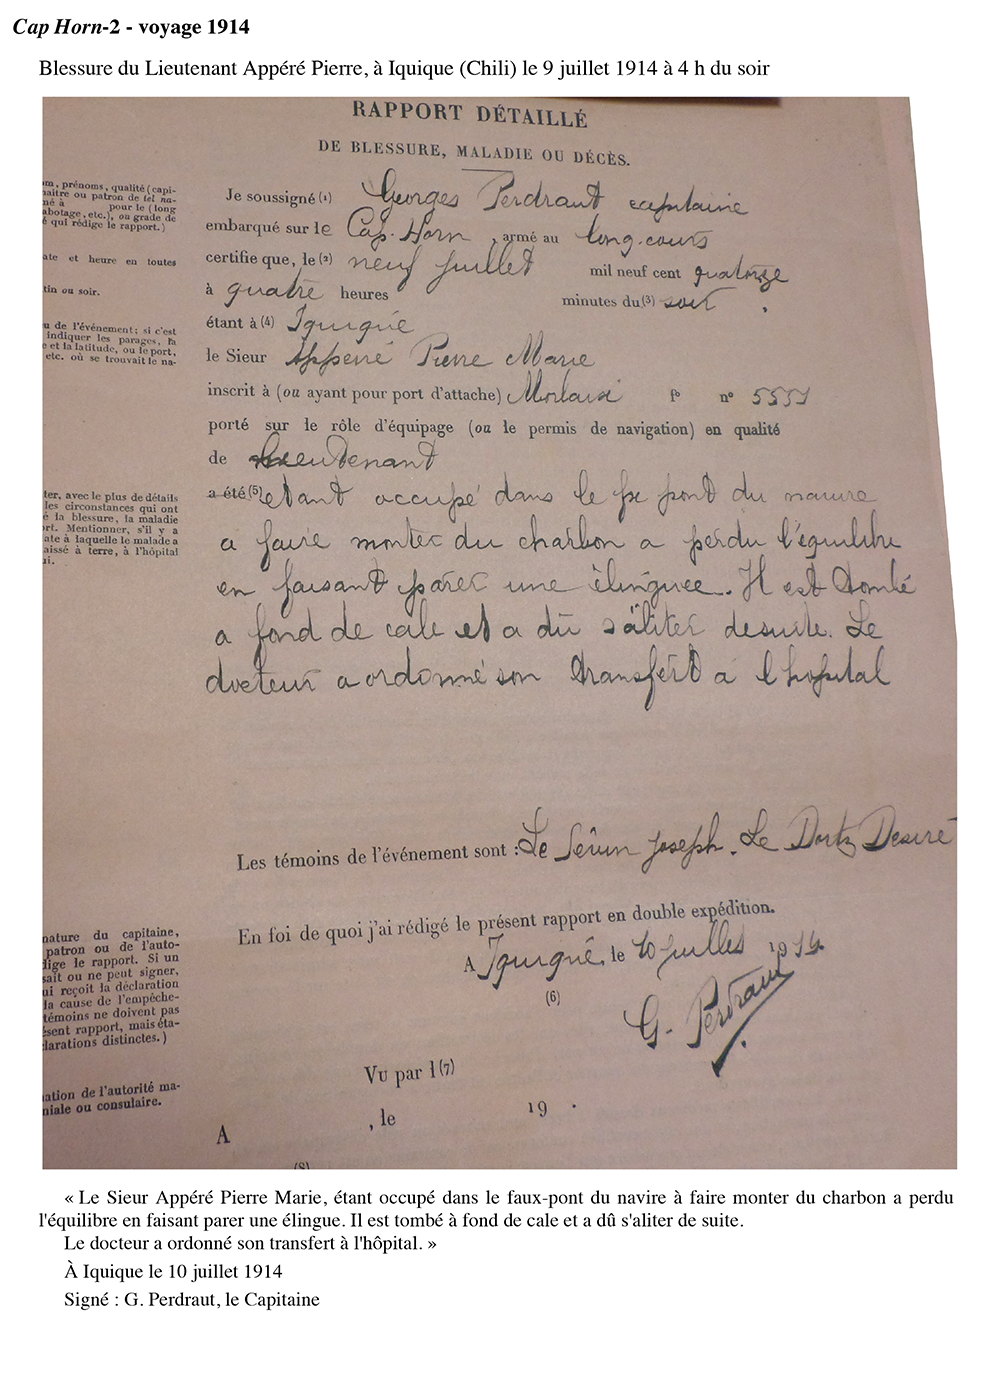 Cap Horn-2 - voyage 1914
Blessure du Lieutenant Appéré Pierre, à Iquique (Chili) le 9 juillet 1914 à 4 h du soir
RAPPORT DÉTAILLÉ
DE BLESSURE, MALADIE OU DÉCÈS.
om, prénoms, qualité (capi-
maître ou patron de tel na-
mé à pour le (long
abotage, etc.), ou grade de
é qui rédige le rapport.)
Je soussigné (1) Georges Perdraut capitaine
embarqué sur le Cap-Horn, armé au long-cours
ate et heure en toutes
certifie que, le (2) neuf juillet mil neuf cent quatorze
tin ou soir.
à quatre heures minutes du (3) soir.
u de l'événement; si c'est
indiquer les parages, la
e et la latitude, ou le port,
etc. où se trouvait le na-
étant à (4) Iquiqué
le Sieur Apperré Pierre Marie
inscrit à (ou ayant pour port d'attache) Morlaix fo no 5551
porté sur le rôle d'équipage (ou le permis de navigation) en qualité
de Lieutenant
ter, avec le plus de détails
les circonstances qui ont
é la blessure, la maladie
ort. Mentionner, s'il y a
ate à laquelle le malade a
aissé à terre, à l'hôpital
ui.
a été (5) etant occupé dans le fx pont du navire
a faire monter du charbon a perdu l'équilibre
en faisant parer une élinguee. Il est tombé
a fond de cale et a dû s'aliter desuite. Le
docteur a ordonné son transfert a l'hopital
Les témoins de l'événement sont : Le Joseph. Le Dortz Desiré
En foi de quoi j'ai rédigé le présent rapport en double expédition.
A Iquiqué, le 10 juillet 1914
(6)
G. Perdraut
nature du capitaine,
patron ou de l'auto-
dige le rapport. Si un
sait ou ne peut signer,
ui reçoit la déclaration
la cause de l'empêche-
témoins ne doivent pas
ésent rapport, mais éta-
larations distinctes.)
Vu par l (7)
ation de l'autorité ma-
niale ou consulaire.
A , le 19 .
(8)
« Le Sieur Appéré Pierre Marie, étant occupé dans le faux-pont du navire à faire monter du charbon a perdu
l'équilibre en faisant parer une élingue. Il est tombé à fond de cale et a dû s'aliter de suite.
Le docteur a ordonné son transfert à l'hôpital. »
À Iquique le 10 juillet 1914
Signé : G. Perdraut, le Capitaine